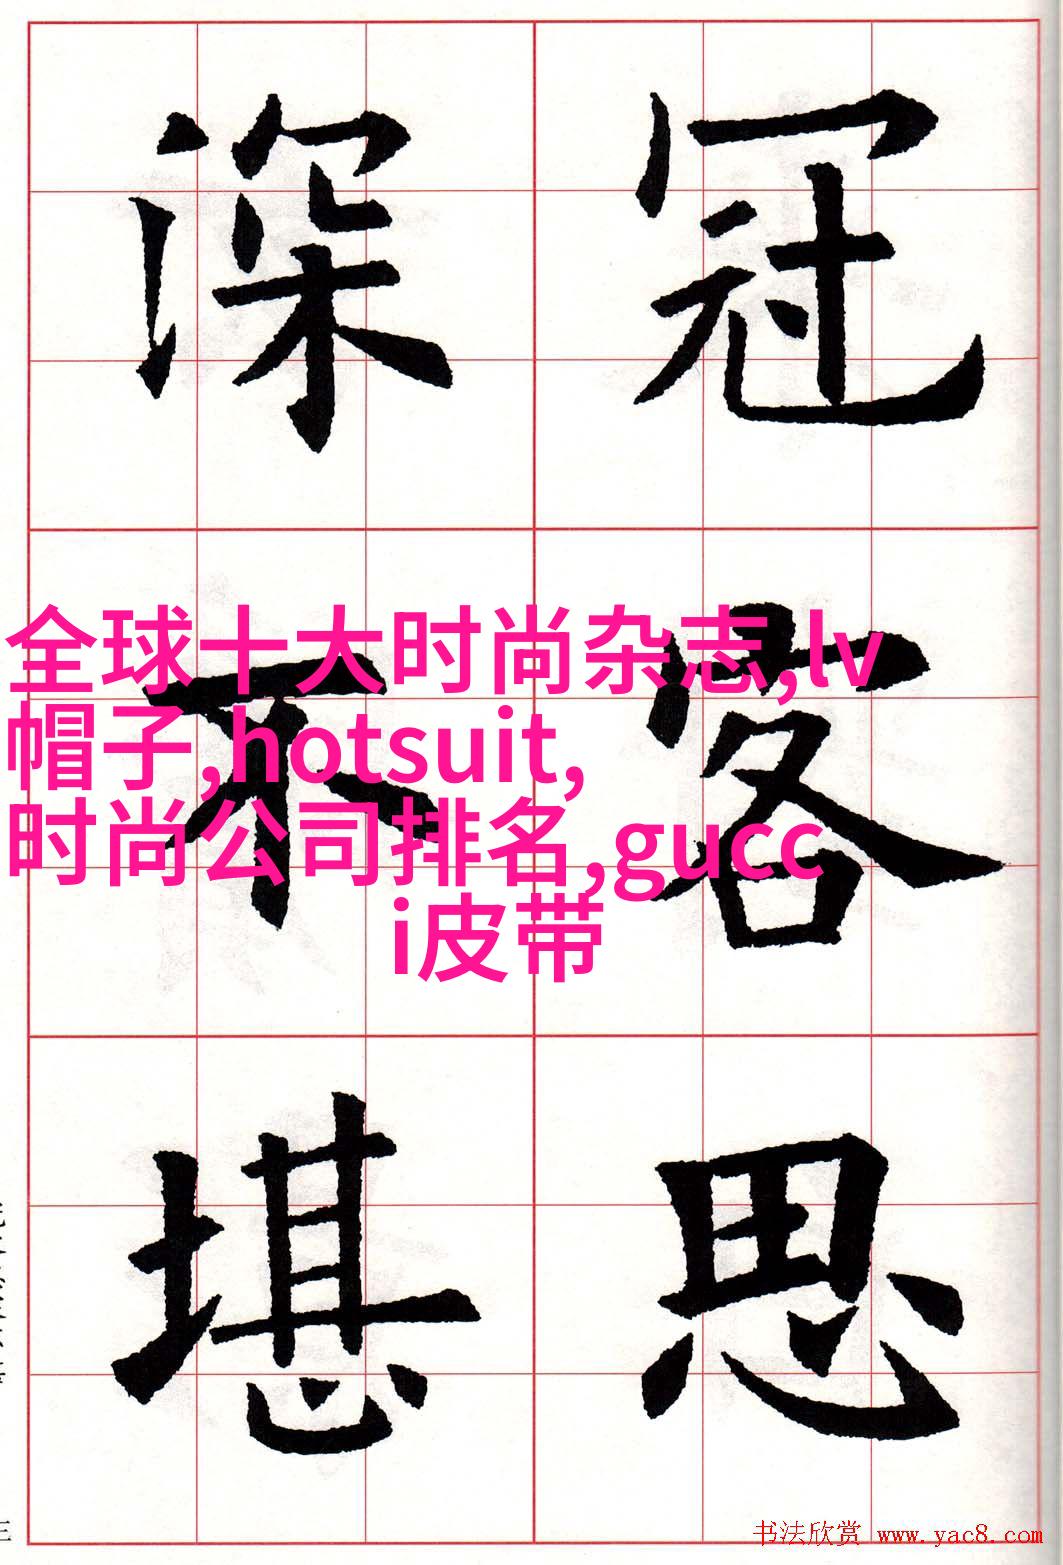 冠客思
深不堪
全球十大时尚杂志,lv
帽子,hotsuit,
时尚公司排名,gucc
i皮带
书法欣赏 www.yac8.com